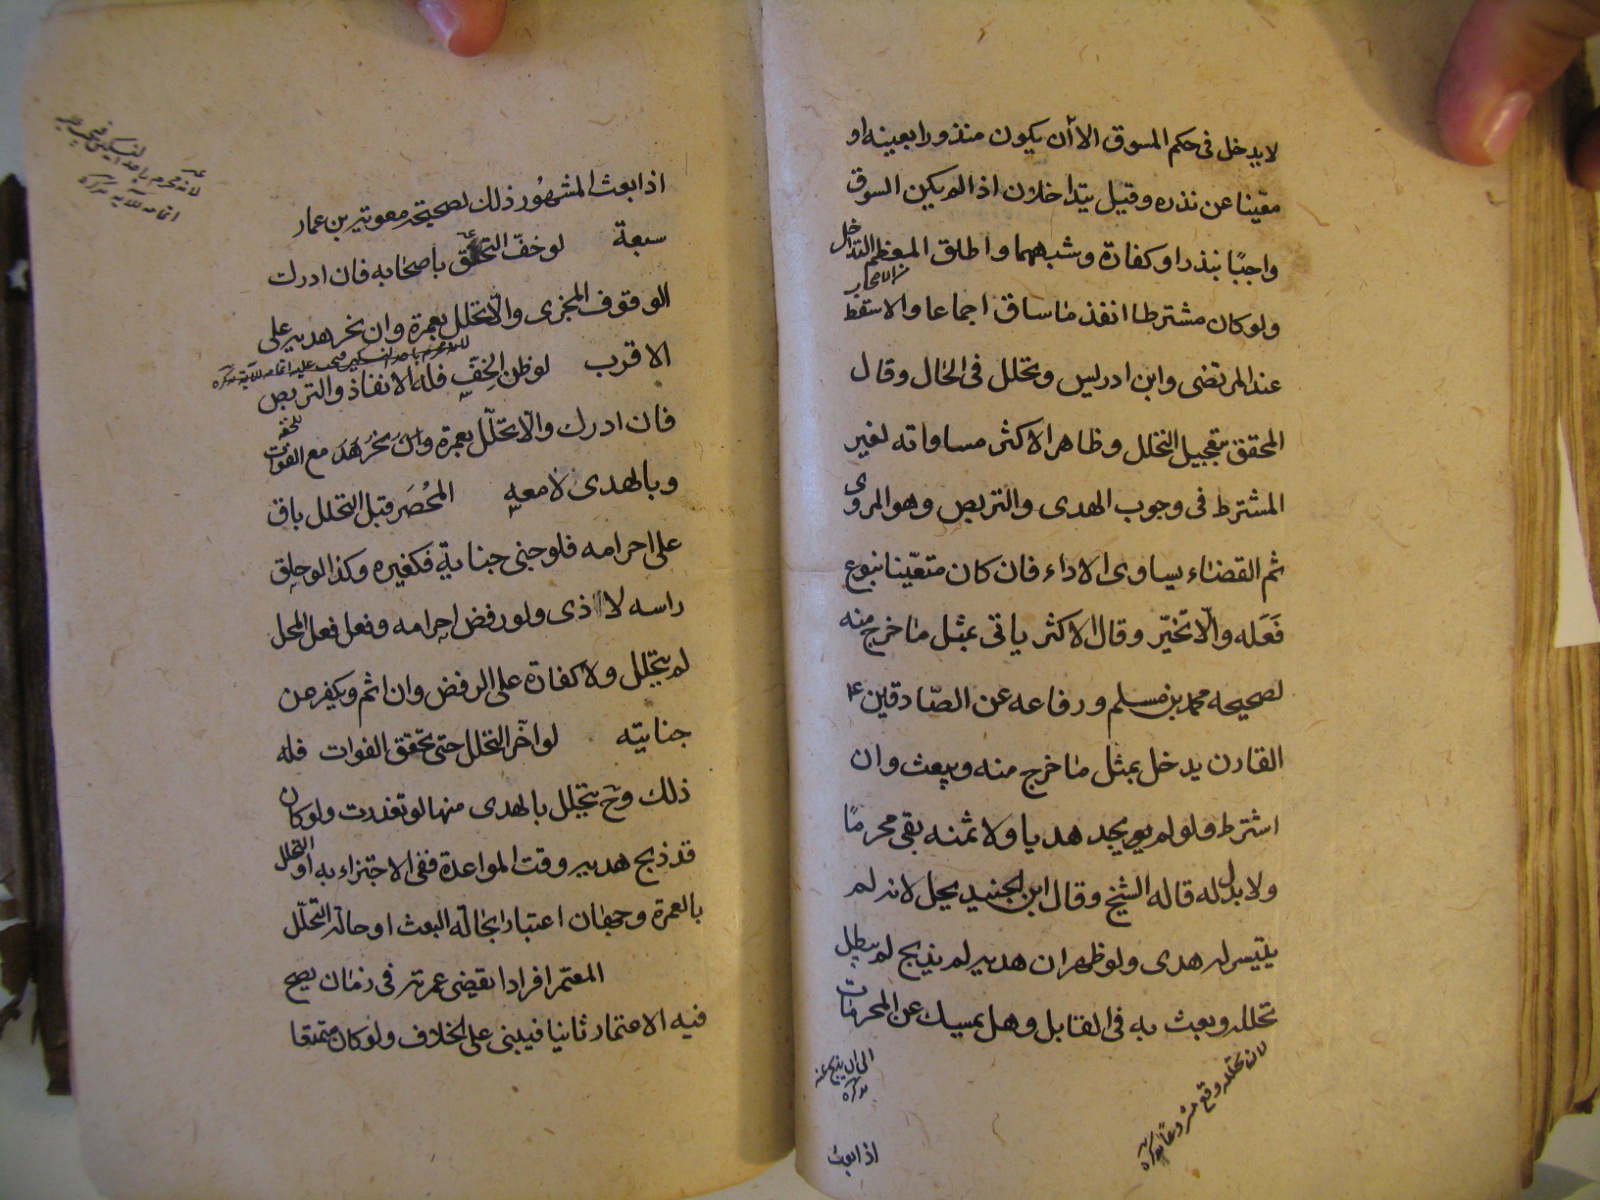 لايدخل فى حكم المسوق الا أن يكون منذورا بعينه او
معيّنا عن نذره وقيل يتداخلان اذا لم يكن السوق
واجبًا بنذر او كفارة وشبههما واطلق المعظم التداخل
من الاصحاب
ولو كان مشترطا انفذ ماساق اجماعا والاسقط
عند المرتضى وابن ادريس وتحلل فى الحال وقال
المحقق بتعجيل التحلل وظاهر الاكثر مساواته لغير
المشترط فى وجوب الهدى والتربص وهو المروى
ثم القضاء يساوى الاداء فان كان متعيّنا بنوع
فَعَله والّا تخيّر وقال الاكثر ياتى بمثل ماخرج منه
لصحيحه محمد بن مسلم ورفاعه عن الصّادقين ع
القارن يدخل بمثل ماخرج منه ويبعث وان
اشترط ولو لم يجد هديا ولا ثمنه بقى محرمًا
ولا بدل له قاله الشيخ وقال ابن الجنيد يحل لانه لم
يتيسر له هدى ولو ظهر ان هديه لم يذبح لم يبطل
تحلله وبعث به فى القابل وهل يمسك عن المحرمات
لان تحلله وقع مشروعًا تذكره
الى ان يذبح عنه
تذكره
اذا بعث
لانه محرم باحد النسكين
اتمامه للآيه تذكره
اذا بعث المشهُور ذلك لصحيحة معوية بن عمار
سبعة لو خفّ التحقّ باصحابه فان ادرك
الوقوف المجزى والّا تحلل بعمرة وان نحر هديه على
الاقرب لو ظن الخفّ فله الانفاذ والتربص
لانه محرم باحد النسكين فيجب عليه اتمامه للآية تذكره
فان ادرك والّا تحلّل بعمرة وان نحر هَديه مع الفوات
وبالهدى لامعه المُحصَر قبل التحلل باق
على احرامه فلو جنى جناية فكغيره وكذا لو حلق
راسه لاذى ولو رفض احرامه وفعل فعل المحل
لم يتحلل ولا كفارة على الرفض وان اثم ويكفر عن
جنايته لو اخّر التحلل حتى تحقق الفوات فله
ذلك وح يتحلل بالهدى منها لو تعذرت ولو كان
قد ذبح هديه وقت المواعدة ففى الاجتزاء به او التحلل
بالعمرة وجهان اعتبارا بحالة البعث او حالة التحلّل
المعتمر افرادا يقضى عمرته فى زمان يصح
فيه الاعتمار ثانيا فيبنى على الخلاف ولو كان متمتعا